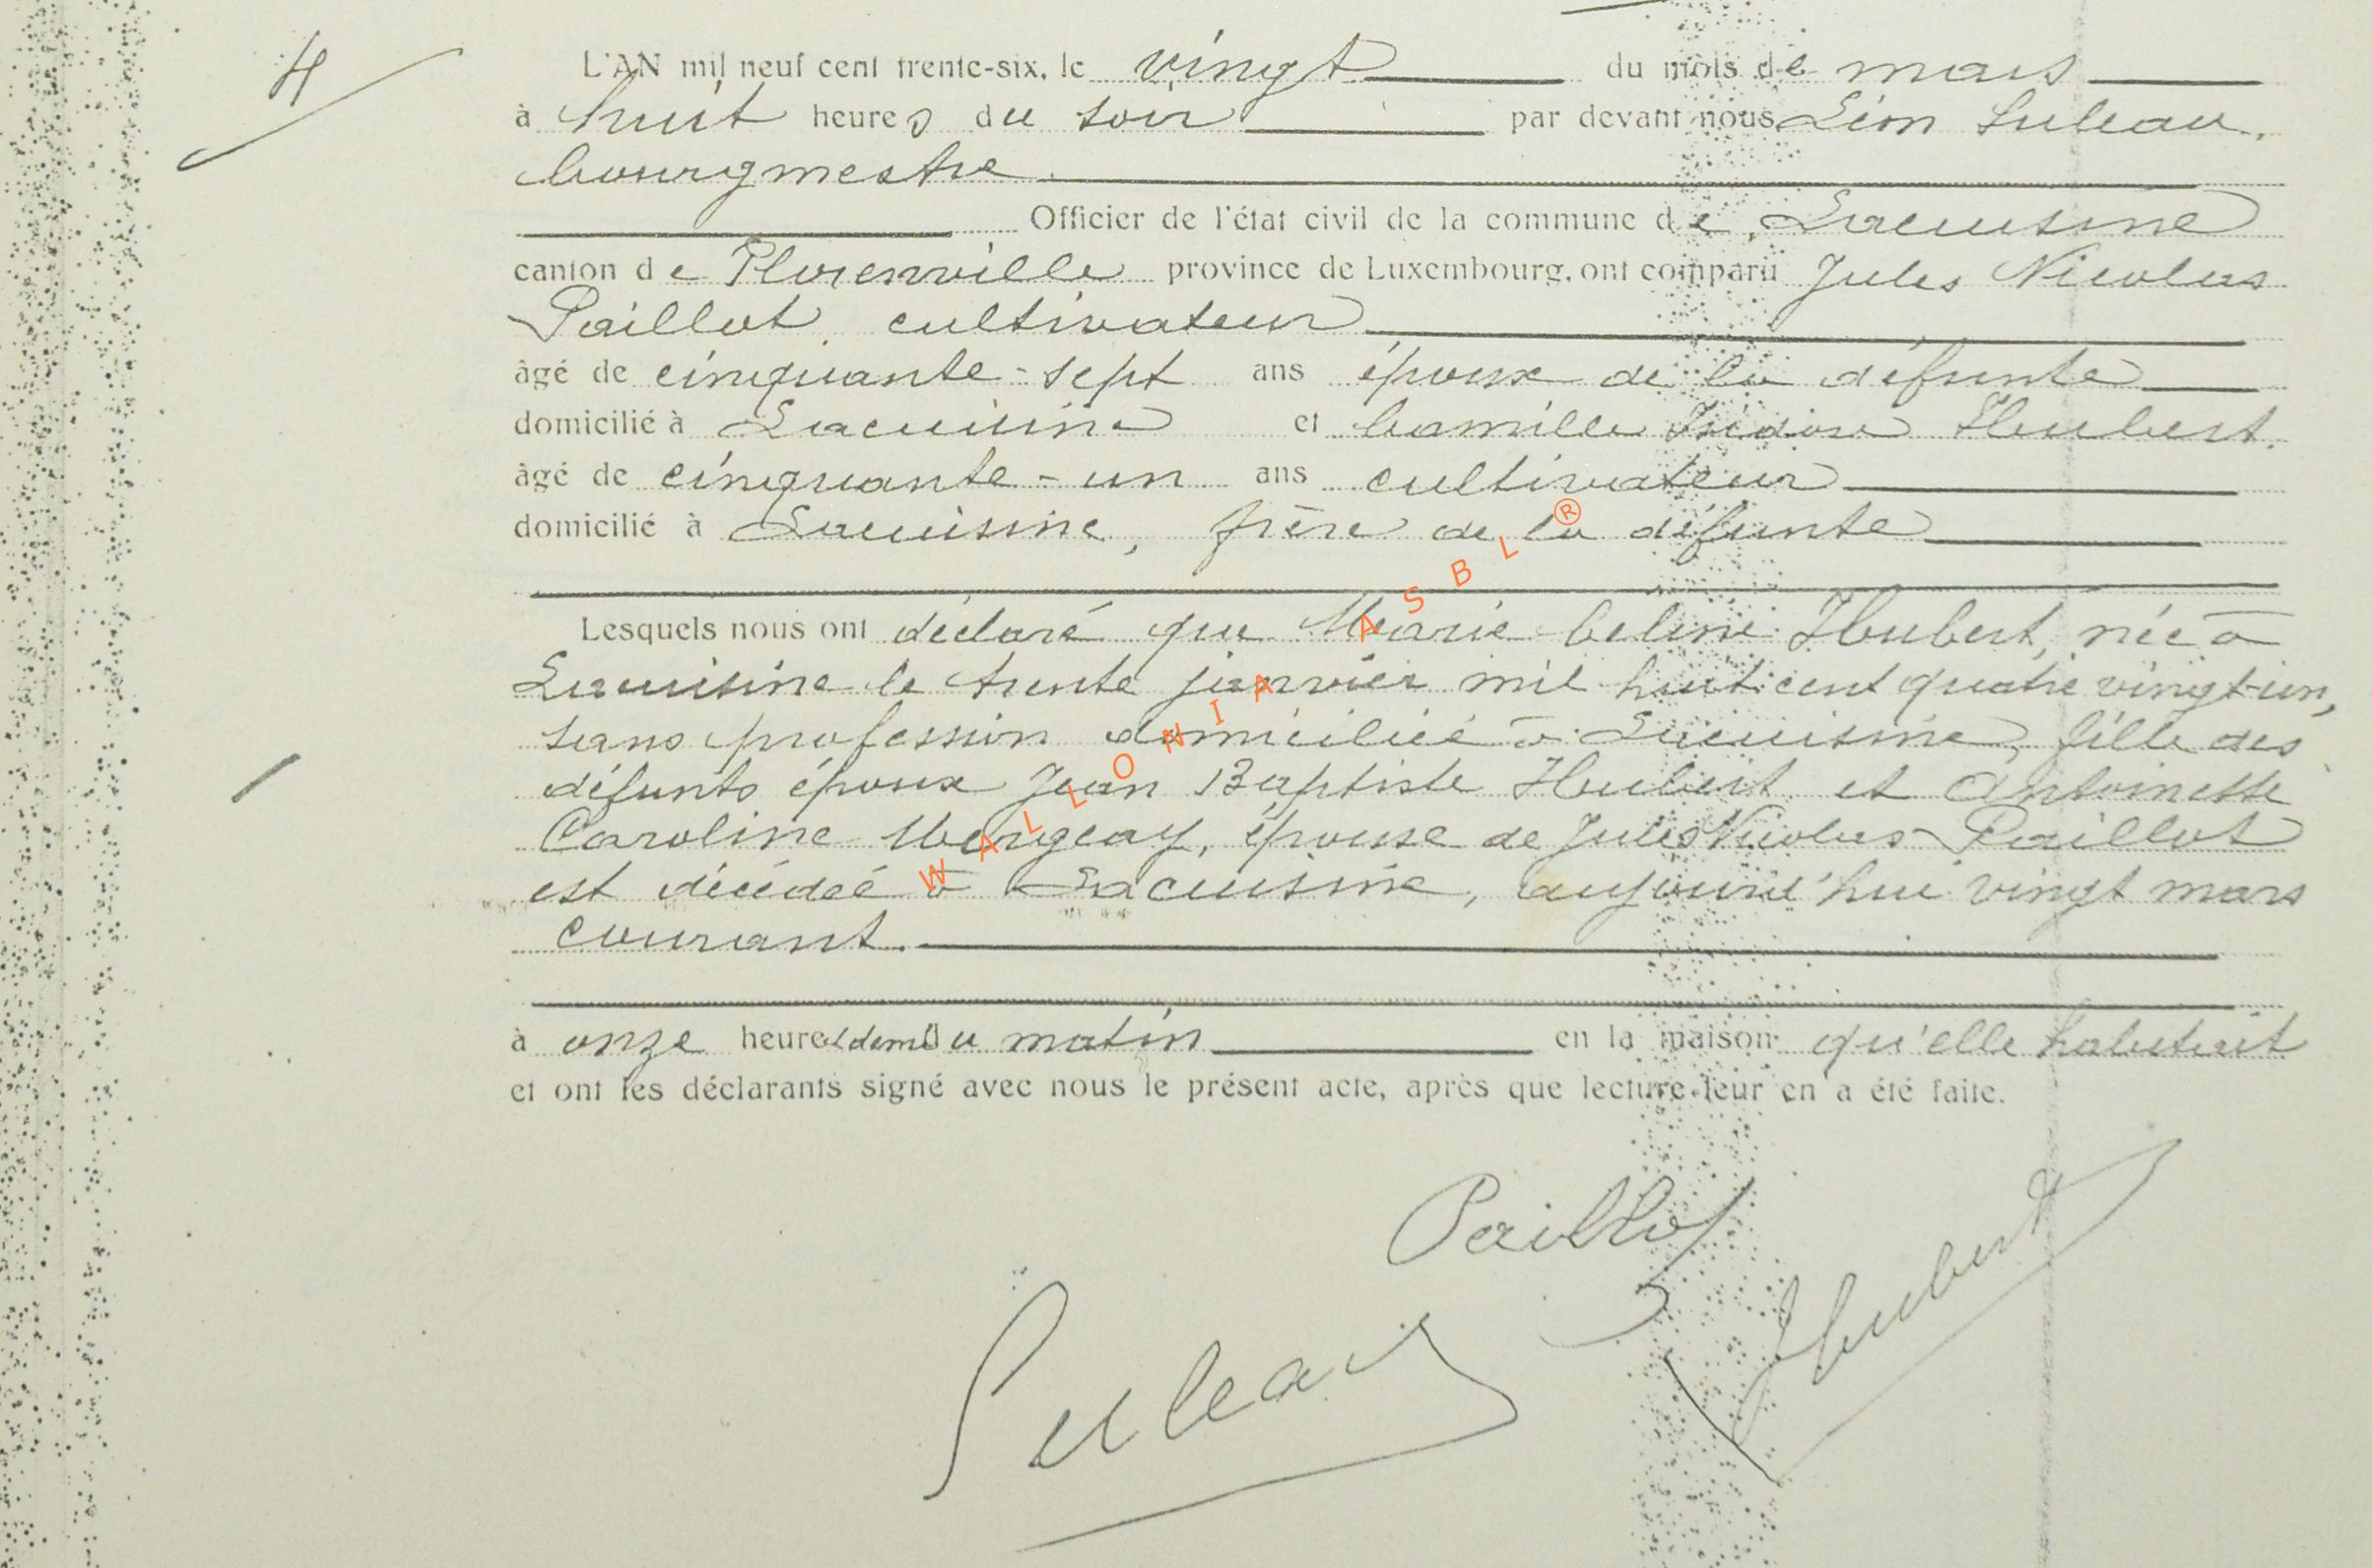 4
L'AN mil neuf cent trente-six, le vingt du mois de mars
à huit heures du soir par devant nous Léon Suleau,
bourgmestre.
Officier de l'état civil de la commune de Lacuisine
canton de Florenville province de Luxembourg, ont comparu Jules Nicolas
Paillot, cultivateur
âgé de cinquante-sept ans époux de la défunte
domicilié à Lacuisine et Camille Isidore Hubert.
âgé de cinquante-un ans cultivateur
domicilié à Lacuisine, frère de la défunte
Lesquels nous ont déclaré que Marie Celine Hubert, née à
Lacuisine le trente janvier mil huit cent quatre vingt-un,
sans profession domiciliée à Lacuisine, fille des
défunts époux Jean Baptiste Hubert et Antoinette
Caroline Mergeay, épouse de Jules Nicolas Paillot
est décédée à Lacuisine, aujourd'hui vingt mars
courant.
à onze heures demi du matin en la maison qu'elle habitait
et ont les déclarants signé avec nous le présent acte, après que lecture leur en a été faite.
Paillot
Hubert
Suleau
WALLONIA ASBL ®